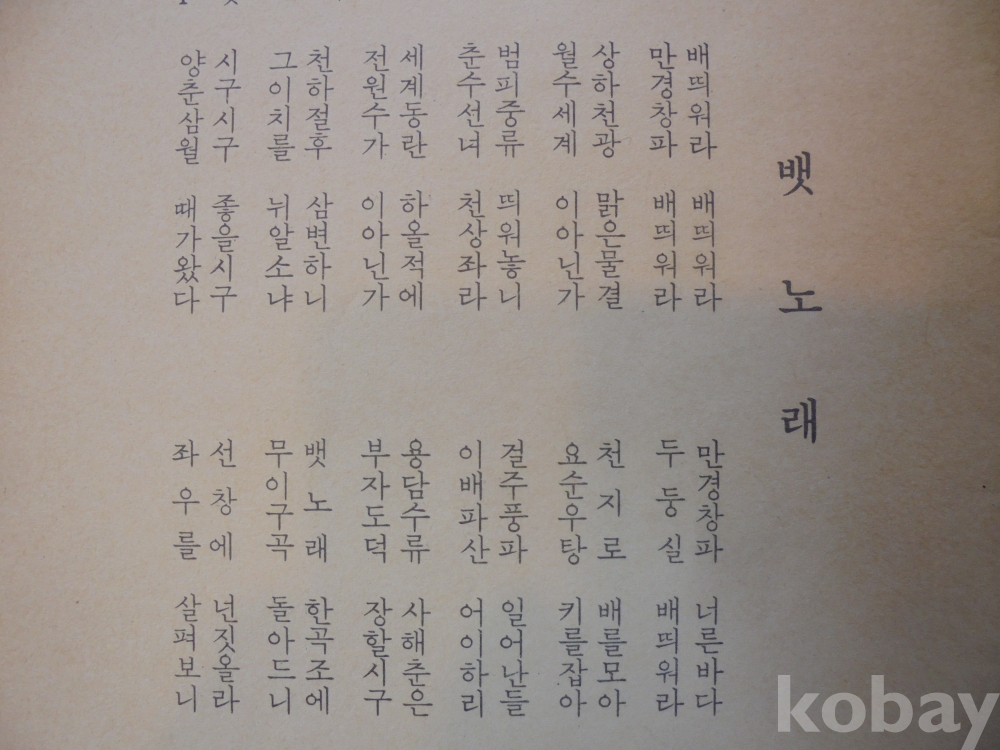 뱃노래
배띄워라 배띄워라
만경창파 배띄워라
만경창파 너른바다
두둥실 배띄워라
상하천광 맑은물결
월수세계 이아닌가
천지로 배를모아
요순우탕 키를잡아
범피중류 띄워놓니
춘수선녀 천상좌라
걸주풍파 일어난들
이배파산 어이하리
세계동란 하올적에
전원수가 이아닌가
용담수류 사해춘은
부자도덕 장할시구
천하절후 삼변하니
그이치를 뉘알소냐
뱃노래 한곡조에
무이구곡 돌아드니
시구시구 좋을시구
양춘삼월 때가왔다
선창에 넌짓올라
좌우를 살펴보니
kobay